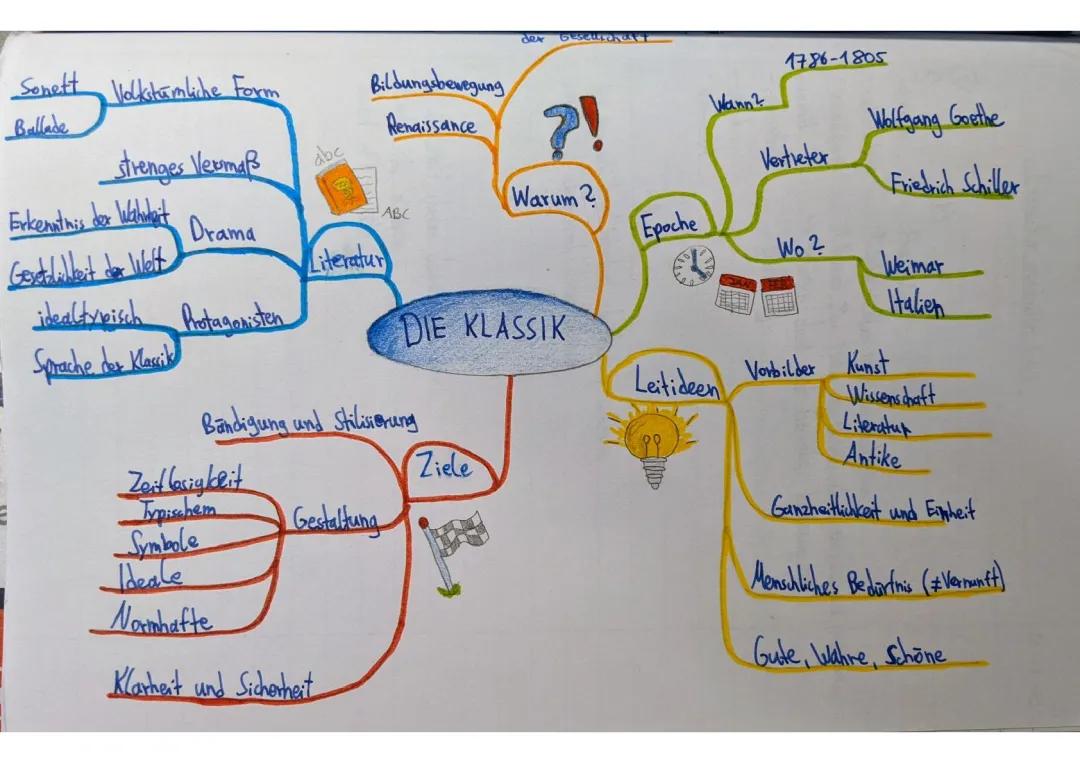 DIE KLASSIK
Literatur
Volkstümliche Form
Sonett
Ballade
strenges Versmaß
Drama
Erkenntnis der Wahrheit
Gesetzlichkeit der Welt
Protagonisten
idealtypisch
Sprache der Klassik
abc
ABC
Warum?
der Gesellschaft
Bildungsbewegung
Renaissance
?!
Epoche
Wann?
1786-1805
Vertreter
Wolfgang Goethe
Friedrich Schiller
Wo?
Weimar
Italien
JAN
FEB
Leitideen
Vorbilder
Kunst
Wissenschaft
Literatur
Antike
Ganzheitlichkeit und Einheit
Menschliches Bedürfnis (≠Vernunft)
Gute, Wahre, Schöne
Ziele
Bändigung und Stilisierung
Gestaltung
Zeitlosigkeit
Typischem
Symbole
Ideale
Normhafte
Klarheit und Sicherheit